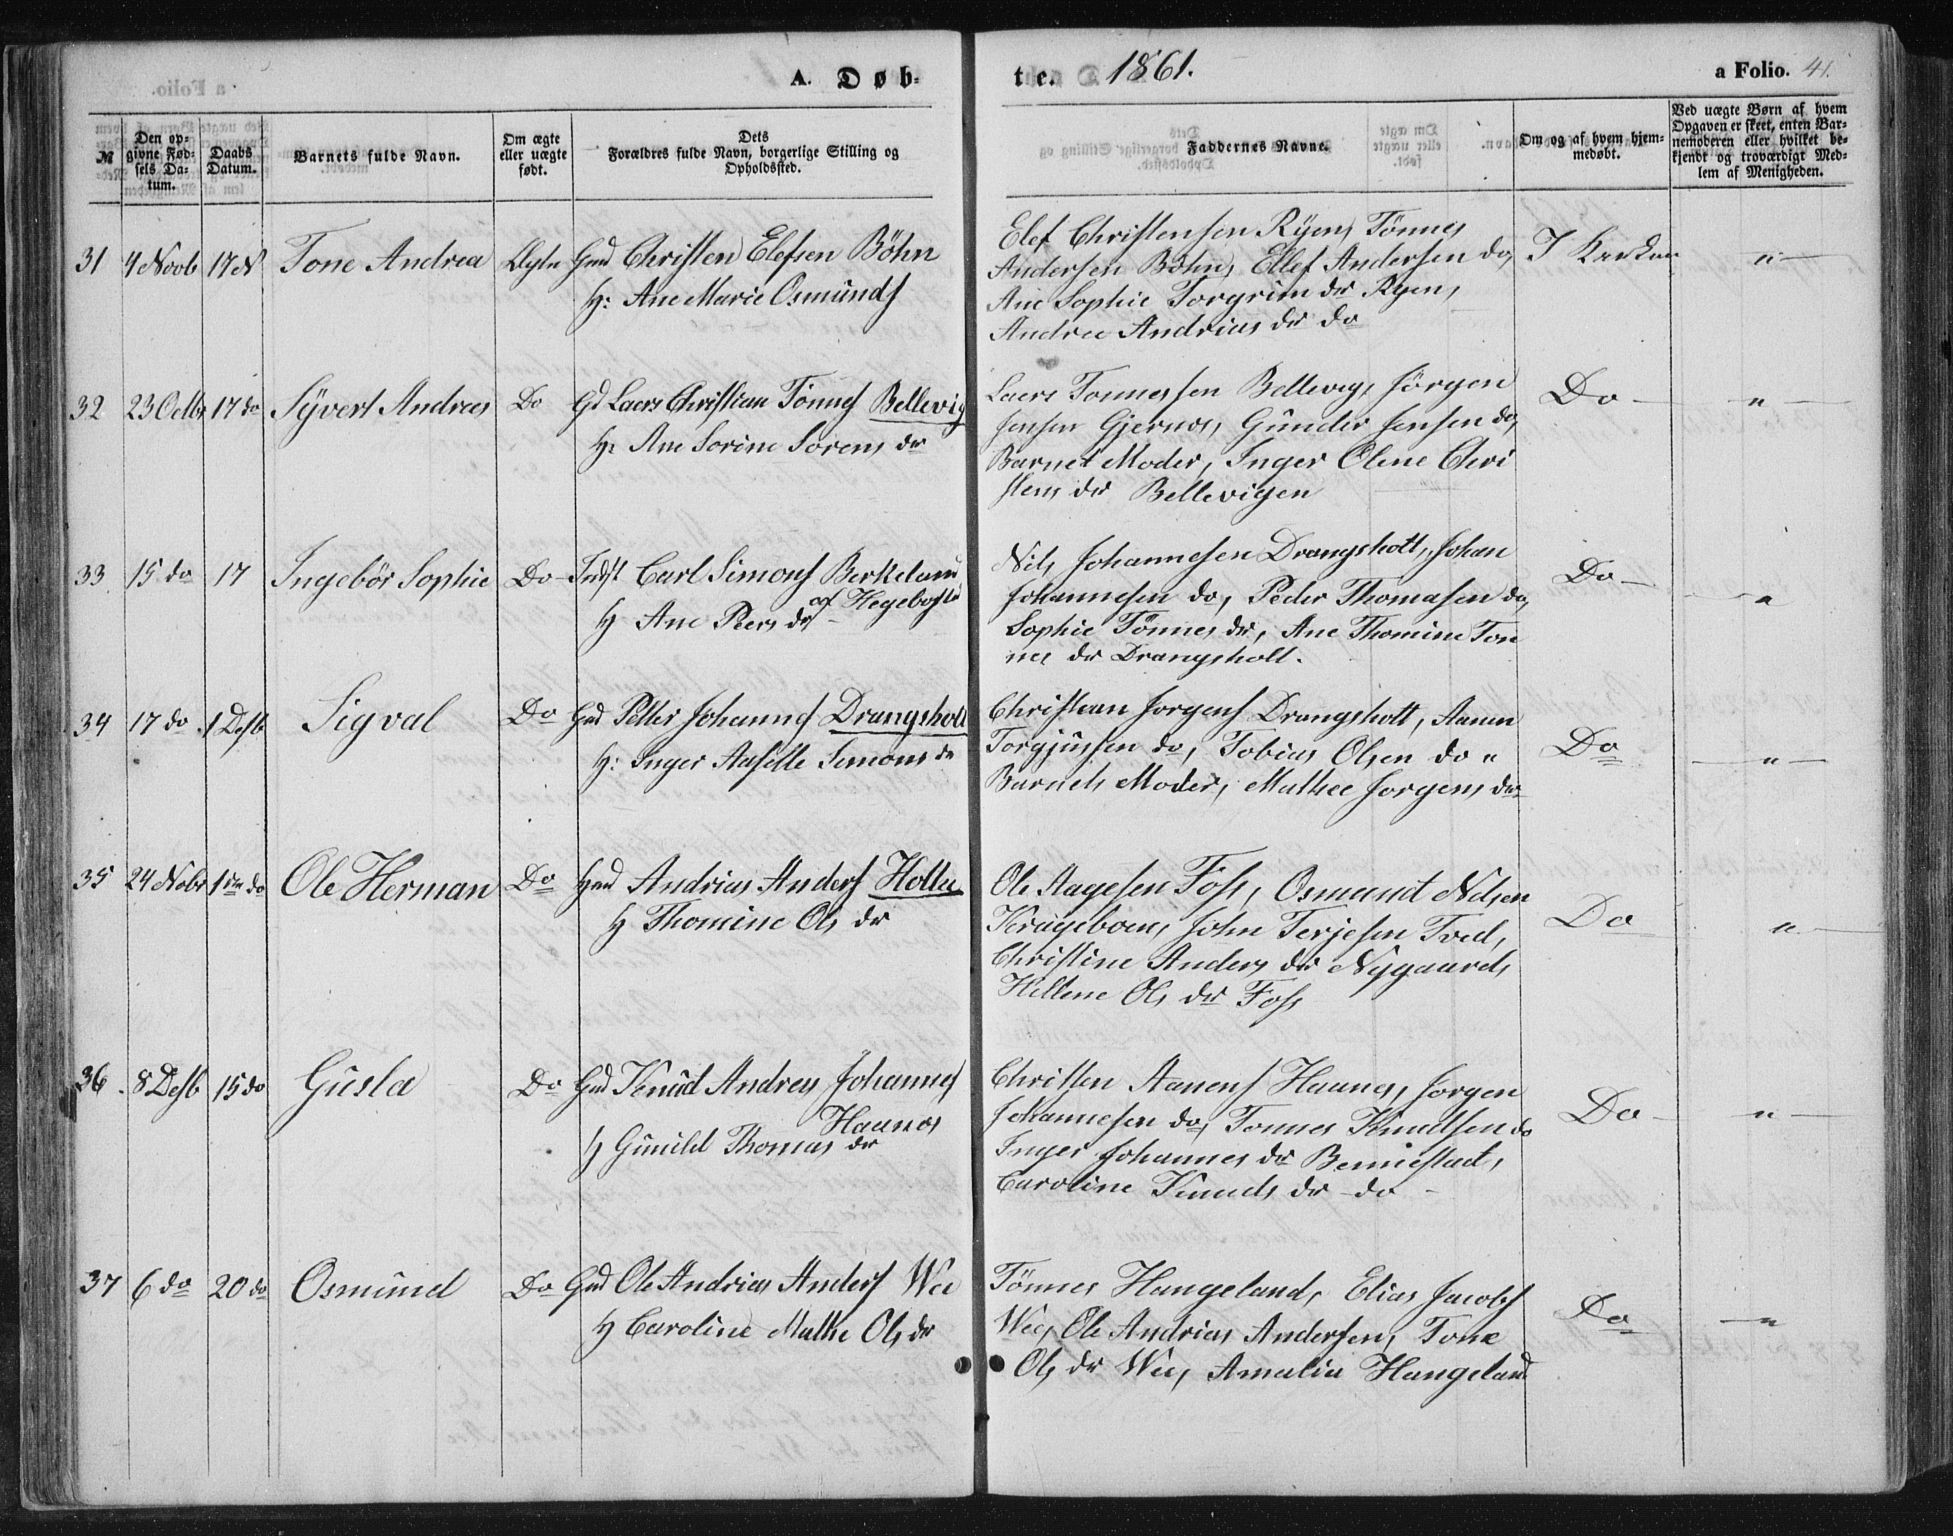 A. Døb-
te. 1861. a Folio. 41.
№
Den op-
givne Fød-
sels Da-
tum.
Daabs
Datum.
Barnets fulde Navn.
Om ægte
eller uægte
født.
Dets
Forældres fulde Navn, borgerlige Stilling og
Opholdssted.
Faddernes Navne.
Om og af hvem hjem-
medøbt.
Ved uægte Børn af hvem
Opgaven er skeet, enten Bar-
nemoderen eller hvilket be-
kjendt og troværdigt Med-
lem af Menigheden.
31 4 Novb 17 N Tone Andrea Ægte Gmd Christen Elefsen Böhn
H: Ane Marie Osmunds
Elef Christensen Ryen, Tönnes
Andersen Böhn, Ellef Andersen do,
Ane Sophie Torgrim dr Ryen,
Andrea Andrias dr do
I Kirken "
32 23 Octbr 17 do Syvert Andreas Do Gd Laers Christian Tönnes Bellevig
H: Ane Sorine Sorens dr
Laers Tonnessen Bellevig, Jörgen
Jensen Gjernes, Gunder Jensen do,
Barnet Moder, Inger Olene Chri
stens dr Bellevigen
Do "
33 15 do 17 Ingebör Sophie Do Indst Carl Simons Berkeland
af Hegebostd
H Ane Peers dr
Nils Johannesen Drangsholt, Johan
Johannesen do, Peder Thomasen do,
Sophie Tönnes dr, Ane Thomine Ton
nes dr Drangsholt.
Do "
34 17 do 1 Desb Sigval Do Gmd Petter Johannes Drangsholt
H: Inger Aasille Simons dr
Christian Jorgens Drangsholt, Aanen
Torgjussen do, Tobias Olsen do "
Barnets Moder, Mathee Jorgens dr
Do "
35 24 Nobr 1ste do Ole Herman Do Hmd Andrias Anders Holte
H Thomine Ols dr
Ole Aagesen Foss, Osmund Nilsen
Krageboen, John Terjesen Tved,
Christine Anders dr Nygaard,
Hellene Ols dr Foss
Do "
36 8 Desb 15 do Gusta Do Gmd Knud Andreas Johannes
Haanes
H Gunild Thomas dr
Christen Aanens Haanes, Jorgen
Johannesen do, Tonnes Knudsen do
Inger Johannes dr Benniestad,
Caroline Knuds dr do
Do "
37 6 do 20 do Osmund Do Gmd Ole Andrias Anders Wee
H Caroline Mathe Ols dr
Tönnes Hangeland, Elias Jacobs
Wee, Ole Andrias Andersen, Tone
Ols dr Wee, Amalia Hangeland
Do "